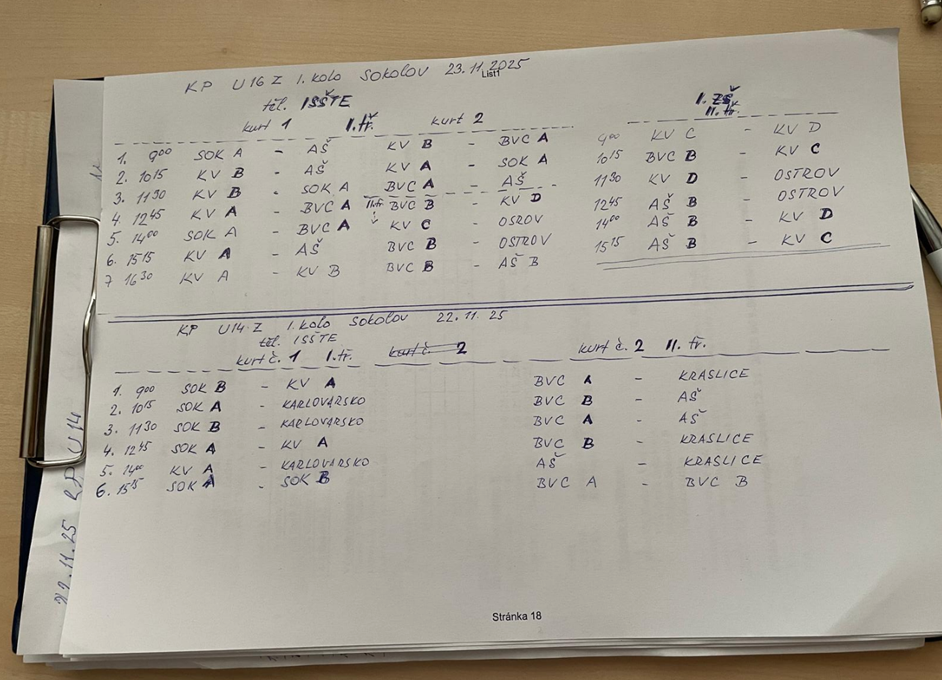 KP U16 Z 1. kolo SOKOLOV 23.11.2025
List1
těl. ISŠTE
I. ZŠ
II. tř.
kurt 1 I. tř. kurt 2
1. 9⁰⁰ SOK A - AŠ KV B - BVC A 9⁰⁰ KV C - KV D
2. 10¹⁵ KV B - AŠ KV A - SOK A 10¹⁵ BVC B - KV C
3. 11³⁰ KV B - SOK A BVC A - AŠ 11³⁰ KV D - OSTROV
4. 12⁴⁵ KV A - BVC A II.tř. BVC B - KV D 12⁴⁵ AŠ B - OSTROV
5. 14⁰⁰ SOK A - BVC A KV C - OSROV 14⁰⁰ AŠ B - KV D
6. 15¹⁵ KV A - AŠ BVC B - OSTROV 15¹⁵ AŠ B - KV C
7 16³⁰ KV A - KV B BVC B - AŠ B
KP U14 Z 1. kolo SOKOLOV 22.11.25
těl. ISŠTE
kurt č. 1 I. tř. kurt č. 2 kurt č. 2 II. tř.
1. 9⁰⁰ SOK B - KV A BVC A - KRASLICE
2. 10¹⁵ SOK A - KARLOVARSKO BVC B - AŠ
3. 11³⁰ SOK B - KARLOVARSKO BVC A - AŠ
4. 12⁴⁵ SOK A - KV A BVC B - KRASLICE
5. 14⁰⁰ KV A - KARLOVARSKO AŠ - KRASLICE
6. 15¹⁵ SOK A - SOK B BVC A - BVC B
Stránka 18
22.11.25 KP U14